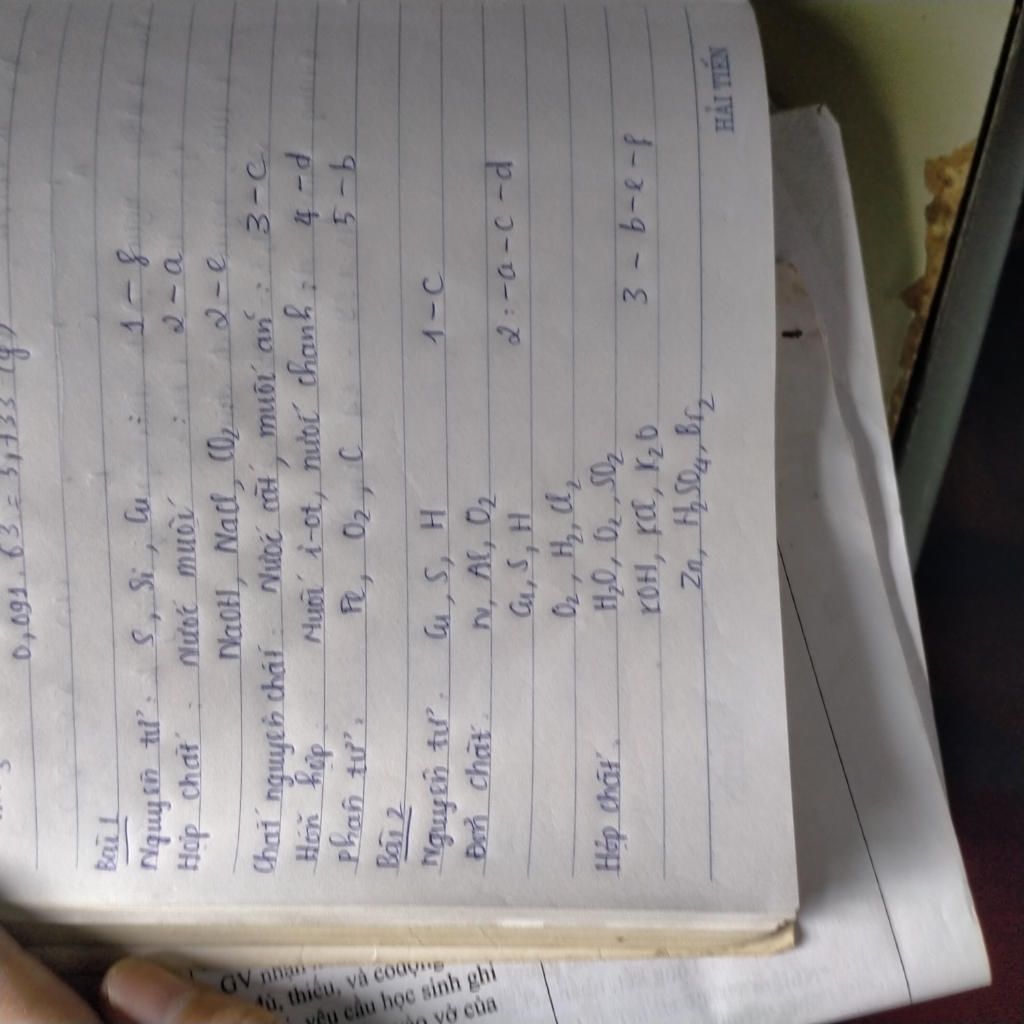 0,091.63 = 5,733 (g)
Bài 1
Nguyên tử : S, Si, Cu : 1 - f
Hợp chất . Nước muối : 2 - a
NaOH, NaCl, CO2. 2 - e
Chất nguyên chất. Nước cất, muối ăn : 3 - c
Hỗn hợp. Muối i-ot, nước chanh : 4 - d
Phân tử. Fe, O2, C 5 - b
Bài 2
Nguyên tử. Cu, S, H 1 - c
Đơn chất. N, Al, O2
Cu, S, H 2 : - a - c - d
O2, H2, Cl2
Hợp chất. H2O, O2, SO2
KOH, KCl, K2O 3 - b - e - f
Zn, H2SO4, Br2
HẢI TIẾN
GV nhận
đủ, thiếu, và
yêu cầu học sinh ghi
vở của